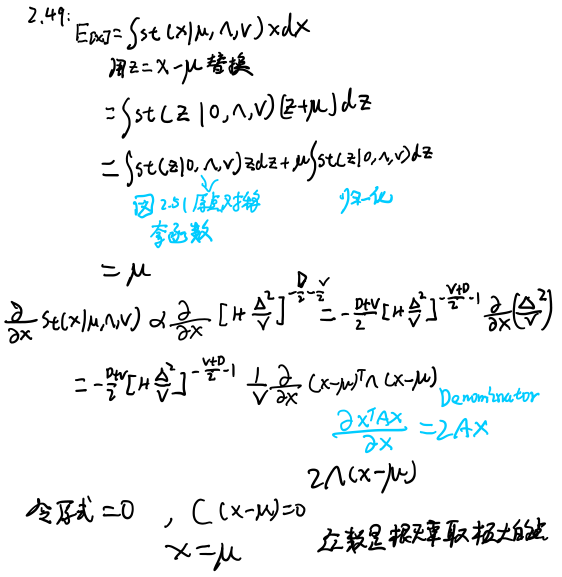 2.49: E[x] = ∫st(x|μ,Λ,ν)xdx
用z = x-μ 替换
= ∫st(z|0,Λ,ν)[z+μ]dz
= ∫st(z|0,Λ,ν)zdz + μ∫st(z|0,Λ,ν)dz
因2.51原点对称 归一化
奇函数
= μ
∂/∂x St(x|μ,Λ,ν) ∝ ∂/∂x [1+Δ²/ν]^(-D/2-ν/2) = -(D+ν)/2 [1+Δ²/ν]^(-(ν+D)/2-1) ∂/∂x(Δ²/ν)
= -(D+ν)/2 [1+Δ²/ν]^(-(ν+D)/2-1) 1/ν ∂/∂x (x-μ)ᵀΛ(x-μ)
Denominator
∂xᵀAx/∂x = 2Ax
2Λ(x-μ)
令原式=0 , C(x-μ)=0
x=μ 众数是概率取极大的点